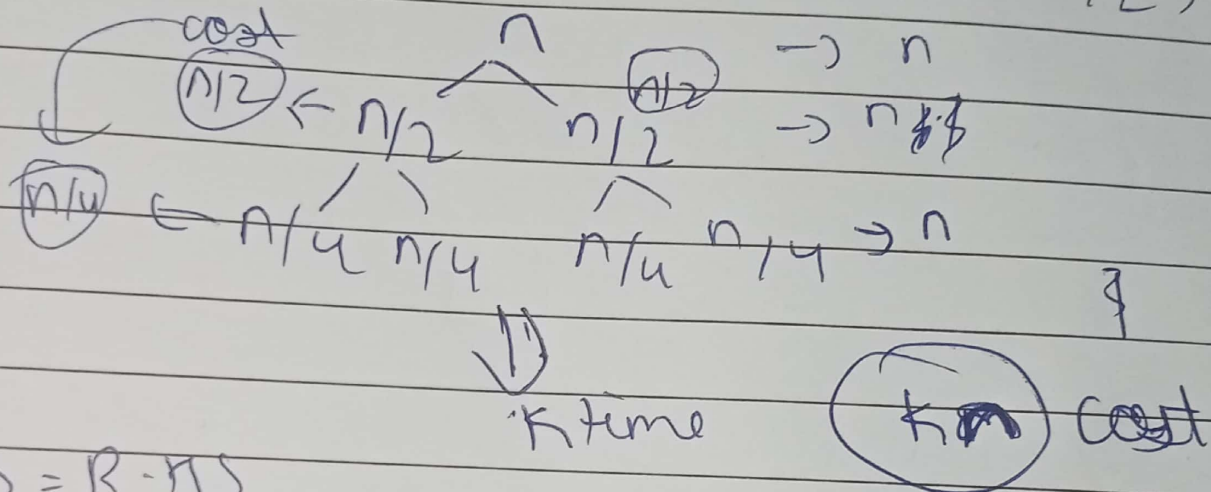 cost n → n
n/2 ← n/2 n/2 n/2 → n
n/4 ← n/4 n/4 n/4 n/4 → n
K time kn cost
= R.HS